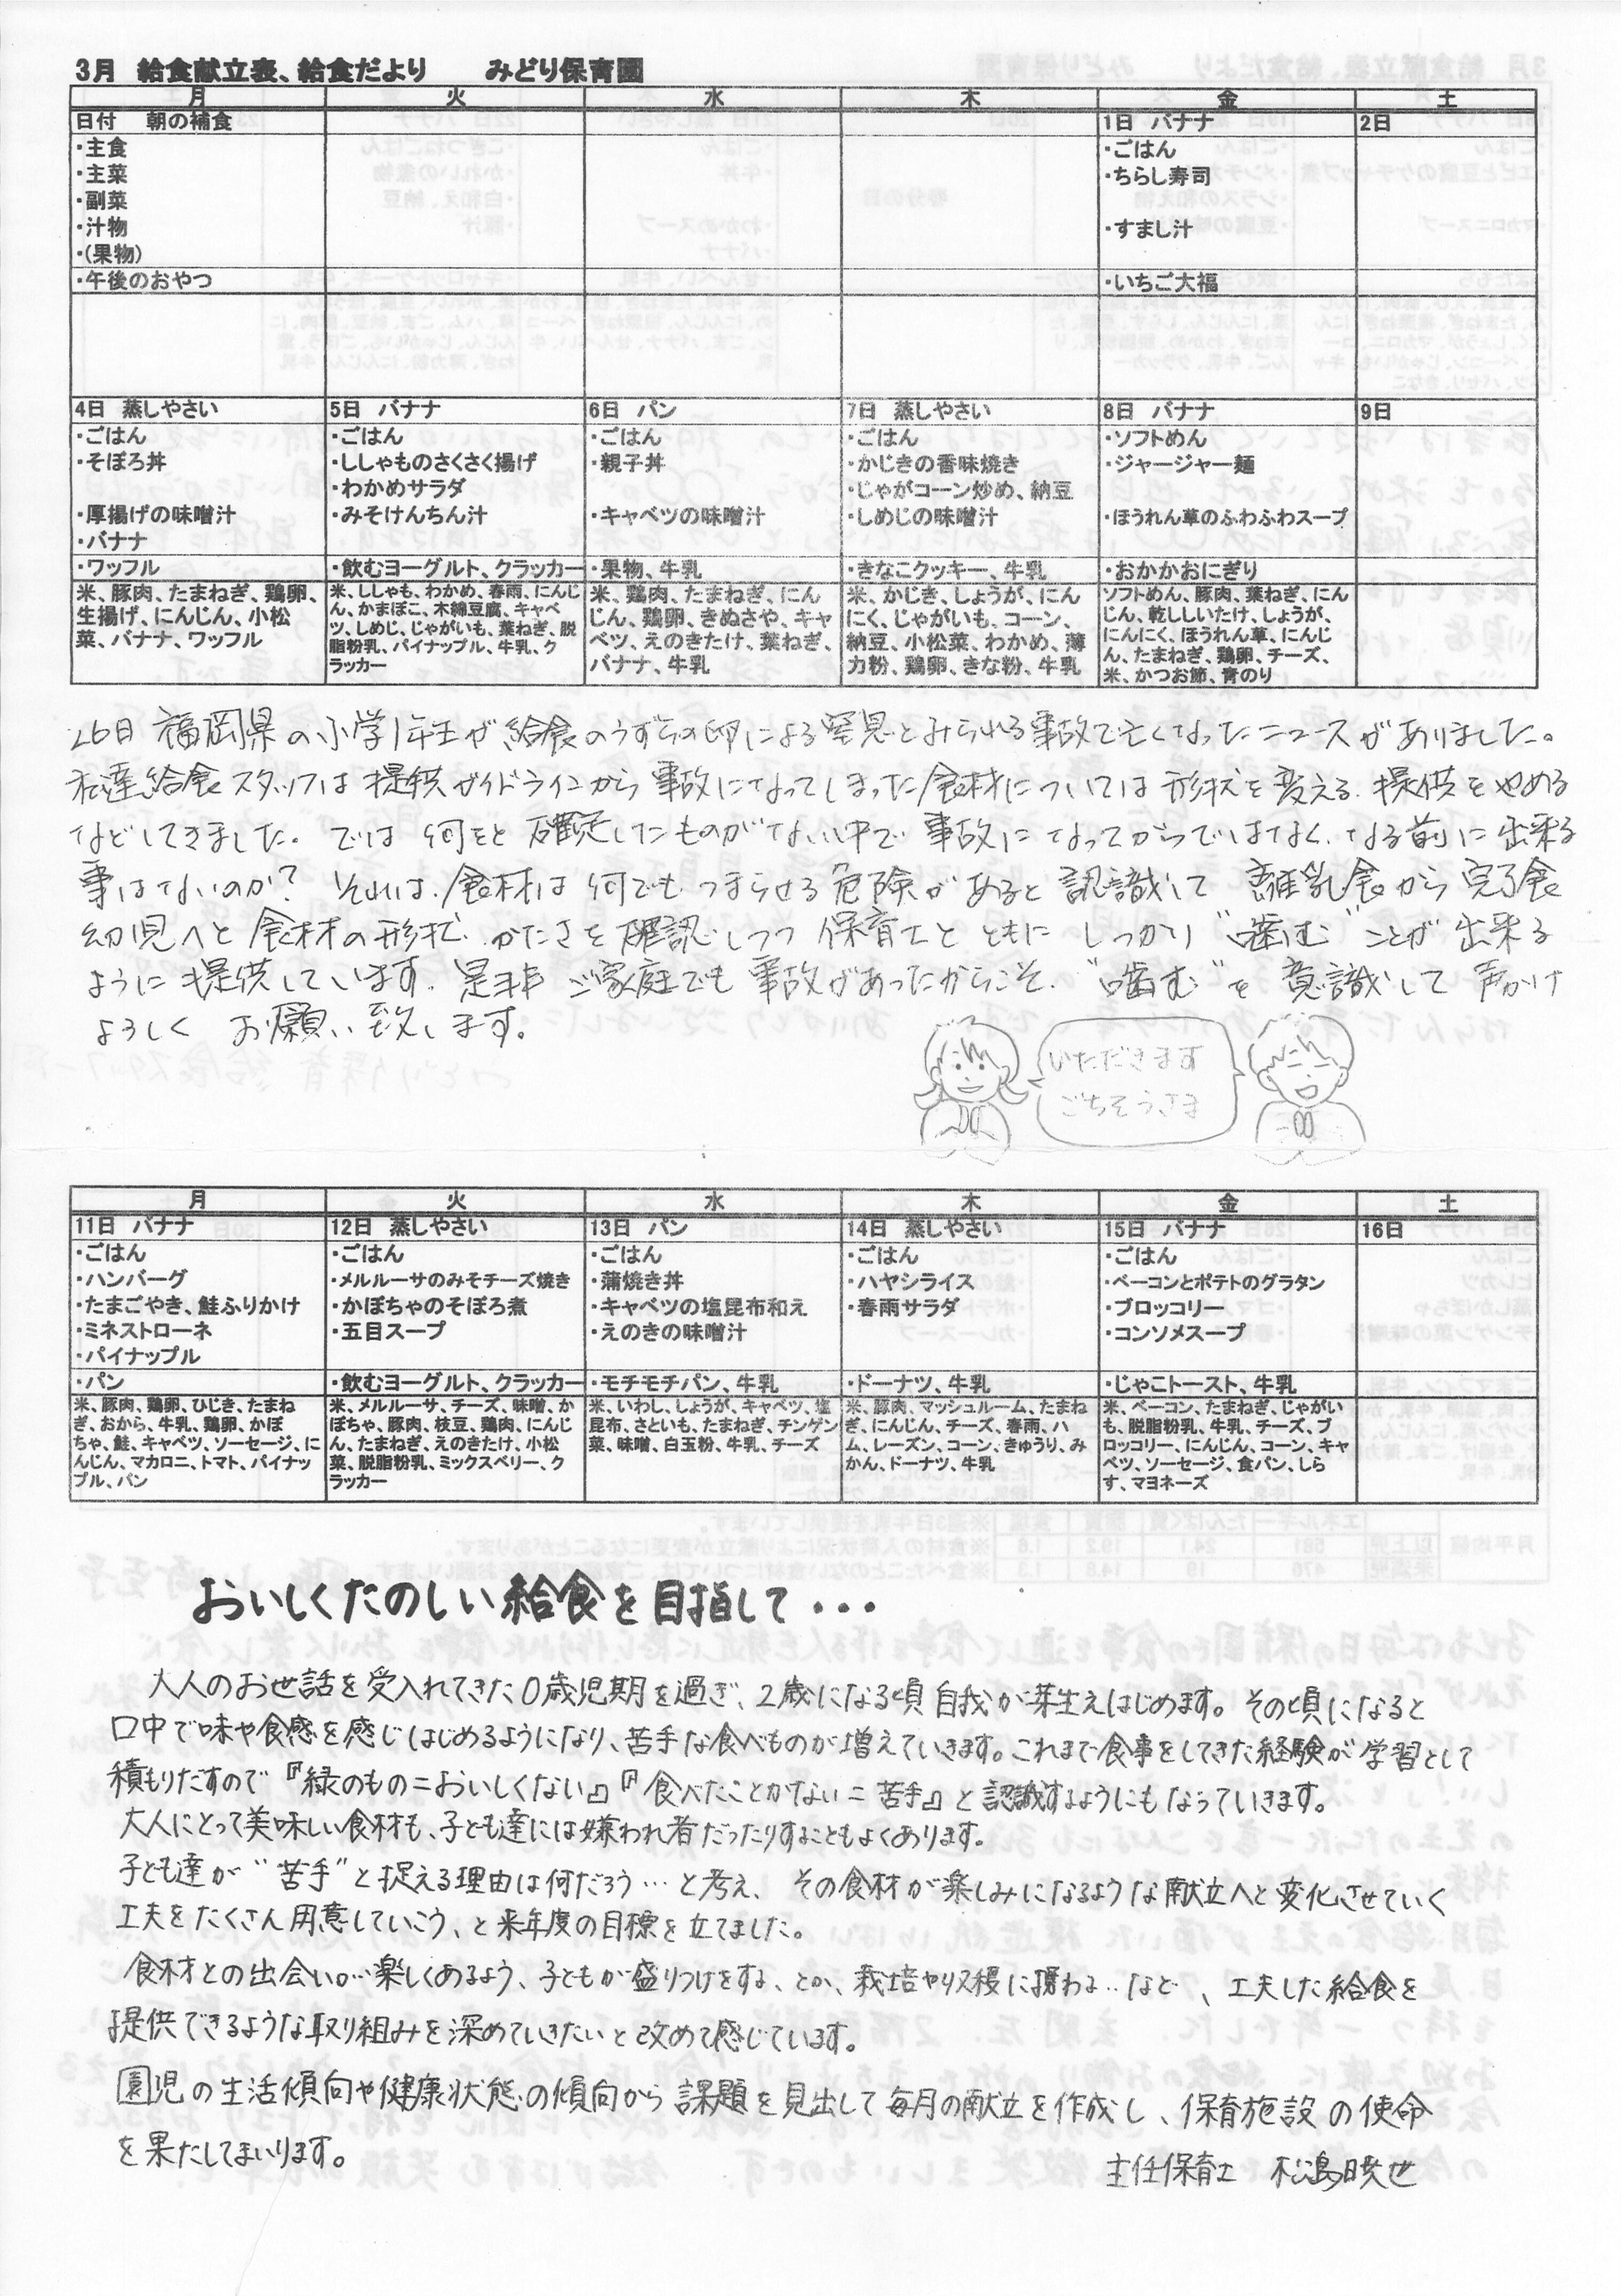 3月 給食献立表、給食だより みどり保育園
月 火 水 木 金 土
日付 朝の補食 1日 バナナ 2日
・主食 ・ごはん
・主菜 ・ちらし寿司
・副菜
・汁物 ・すまし汁
・(果物)
・午後のおやつ ・いちご大福
4日 蒸しやさい 5日 バナナ 6日 パン 7日 蒸しやさい 8日 バナナ 9日
・ごはん ・ごはん ・ごはん ・ごはん ・ソフトめん
・そぼろ丼 ・ししゃものさくさく揚げ ・親子丼 ・かじきの香味焼き ・ジャージャー麺
・わかめサラダ ・じゃがコーン炒め、納豆
・厚揚げの味噌汁 ・みそけんちん汁 ・キャベツの味噌汁 ・しめじの味噌汁 ・ほうれん草のふわふわスープ
・バナナ
・ワッフル ・飲むヨーグルト、クラッカー ・果物、牛乳 ・きなこクッキー、牛乳 ・おかかおにぎり
米、豚肉、たまねぎ、鶏卵、
生揚げ、にんじん、小松
菜、バナナ、ワッフル
米、ししゃも、わかめ、春雨、にんじ
ん、かまぼこ、木綿豆腐、キャベ
ツ、しめじ、じゃがいも、葉ねぎ、脱
脂粉乳、パイナップル、牛乳、ク
ラッカー
米、鶏肉、たまねぎ、にん
じん、鶏卵、きぬさや、キャ
ベツ、えのきたけ、葉ねぎ、
バナナ、牛乳
米、かじき、しょうが、にん
にく、じゃがいも、コーン、
納豆、小松菜、わかめ、薄
力粉、鶏卵、きな粉、牛乳
ソフトめん、豚肉、葉ねぎ、にん
じん、乾ししいたけ、しょうが、
にんにく、ほうれん草、にんじ
ん、たまねぎ、鶏卵、チーズ、
米、かつお節、青のり
26日 福岡県の小学1年生が給食のうずらの卵による窒息とみられる事故で亡くなったニュースがありました。
私達給食スタッフは提供ガイドラインから事故になってしまった食材については形状を変える、提供をやめる
などしてきました。では 何をと 確定したものがない中で 事故になってからではなく、なる前に出来る
事はないのか? それは、食材は何でもつまらせる危険があると認識して 離乳食から完了食
幼児へと食材の形状、かたさを確認しつつ 保育士とともに しっかり“噛む”ことが出来る
ように提供しています。是非ご家庭でも事故があったからこそ、“噛む”を意識して声かけ
よろしく お願い致します。
いただきます
ごちそうさま
月 火 水 木 金 土
11日 バナナ 12日 蒸しやさい 13日 パン 14日 蒸しやさい 15日 バナナ 16日
・ごはん ・ごはん ・ごはん ・ごはん ・ごはん
・ハンバーグ ・メルルーサのみそチーズ焼き ・蒲焼き丼 ・ハヤシライス ・ベーコンとポテトのグラタン
・たまごやき、鮭ふりかけ ・かぼちゃのそぼろ煮 ・キャベツの塩昆布和え ・春雨サラダ ・ブロッコリー
・ミネストローネ ・五目スープ ・えのきの味噌汁 ・コンソメスープ
・パイナップル
・パン ・飲むヨーグルト、クラッカー ・モチモチパン、牛乳 ・ドーナツ、牛乳 ・じゃこトースト、牛乳
米、豚肉、鶏卵、ひじき、たまね
ぎ、おから、牛乳、鶏卵、かぼ
ちゃ、鮭、キャベツ、ソーセージ、に
んじん、マカロニ、トマト、パイナッ
プル、パン
米、メルルーサ、チーズ、味噌、か
ぼちゃ、豚肉、枝豆、鶏肉、にんじ
ん、たまねぎ、えのきたけ、小松
菜、脱脂粉乳、ミックスベリー、ク
ラッカー
米、いわし、しょうが、キャベツ、塩
昆布、さといも、たまねぎ、チンゲン
菜、味噌、白玉粉、牛乳、チーズ
米、豚肉、マッシュルーム、たまね
ぎ、にんじん、チーズ、春雨、ハ
ム、レーズン、コーン、きゅうり、み
かん、ドーナツ、牛乳
米、ベーコン、たまねぎ、じゃがい
も、脱脂粉乳、牛乳、チーズ、ブ
ロッコリー、にんじん、コーン、キャ
ベツ、ソーセージ、食パン、しら
す、マヨネーズ
おいしくたのしい給食を目指して・・・
大人のお世話を受入れてきた0歳児期を過ぎ、2歳になる頃自我が芽生えはじめます。その頃になると
口中で味や食感を感じはじめるようになり、苦手な食べものが増えていきます。これまで食事をしてきた経験が学習として
積もりだすので『緑のもの=おいしくない』『食べたことがない=苦手』と認識するようにもなっていきます。
大人にとって美味しい食材も、子ども達には嫌われ者だったりすることもよくあります。
子ども達が“苦手”と捉える理由は何だろう…と考え、その食材が楽しみになるような献立へと変化させていく
工夫をたくさん用意していこう、と来年度の目標を立てました。
食材との出会いが楽しくあるよう、子どもが盛りつけをする、とか、栽培や収穫に携わる‥など、工夫した給食を
提供できるような取り組みを深めていきたいと改めて感じています。
園児の生活傾向や健康状態の傾向から課題を見出して毎月の献立を作成し、保育施設の使命
を果たしてまいります。
主任保育士 松島